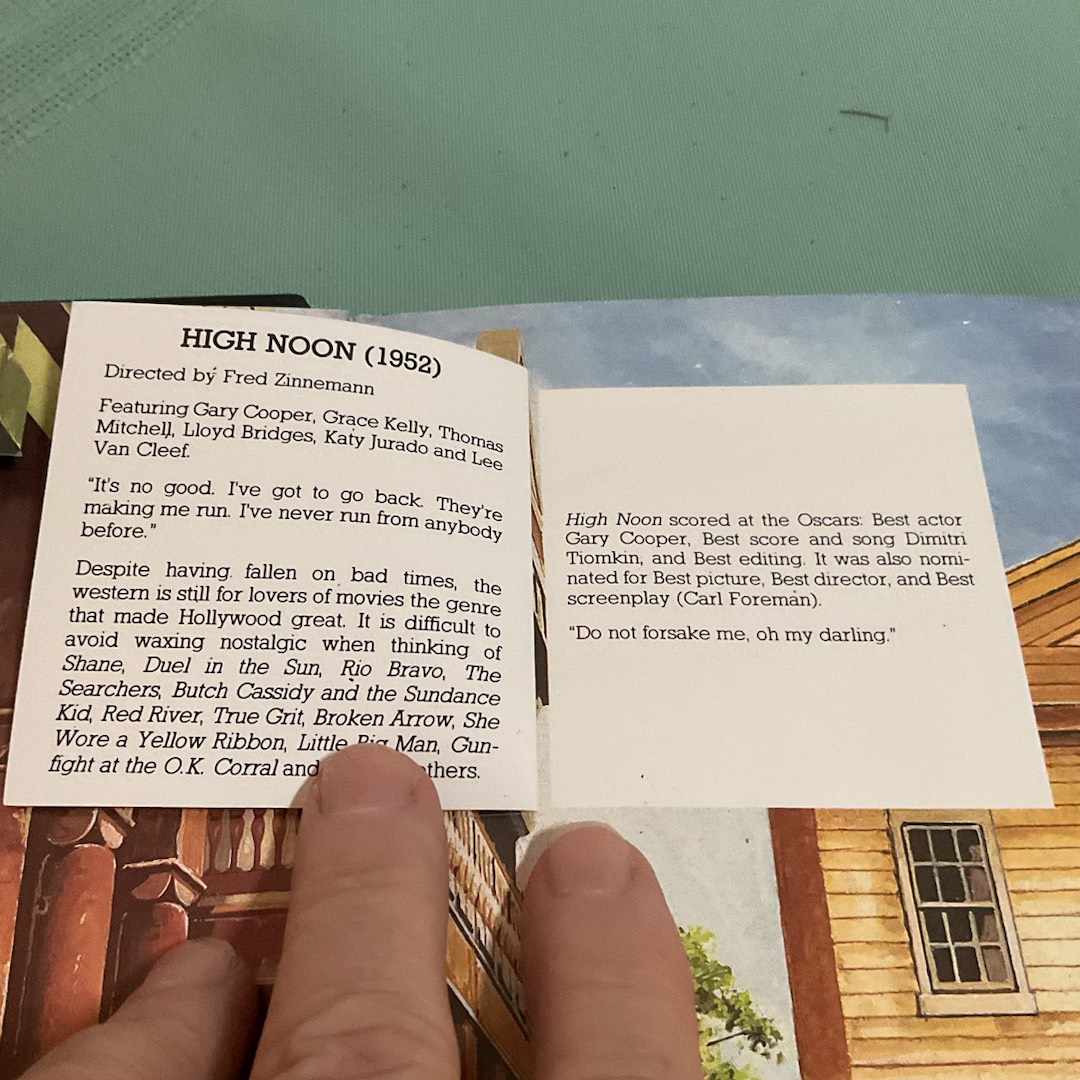 HIGH NOON (1952)
Directed by Fred Zinnemann
Featuring Gary Cooper, Grace Kelly, Thomas
Mitchell, Lloyd Bridges, Katy Jurado and Lee
Van Cleef.
"It's no good. I've got to go back. They're
making me run. I've never run from anybody
before."
Despite having fallen on bad times, the
western is still for lovers of movies the genre
that made Hollywood great. It is difficult to
avoid waxing nostalgic when thinking of
Shane, Duel in the Sun, Rio Bravo, The
Searchers, Butch Cassidy and the Sundance
Kid, Red River, True Grit, Broken Arrow, She
Wore a Yellow Ribbon, Little Big Man, Gun-
fight at the O.K. Corral and
High Noon scored at the Oscars: Best actor
Gary Cooper, Best score and song Dimitri
Tiomkin, and Best editing. It was also nomi-
nated for Best picture, Best director, and Best
screenplay (Carl Foreman).
"Do not forsake me, oh my darling."